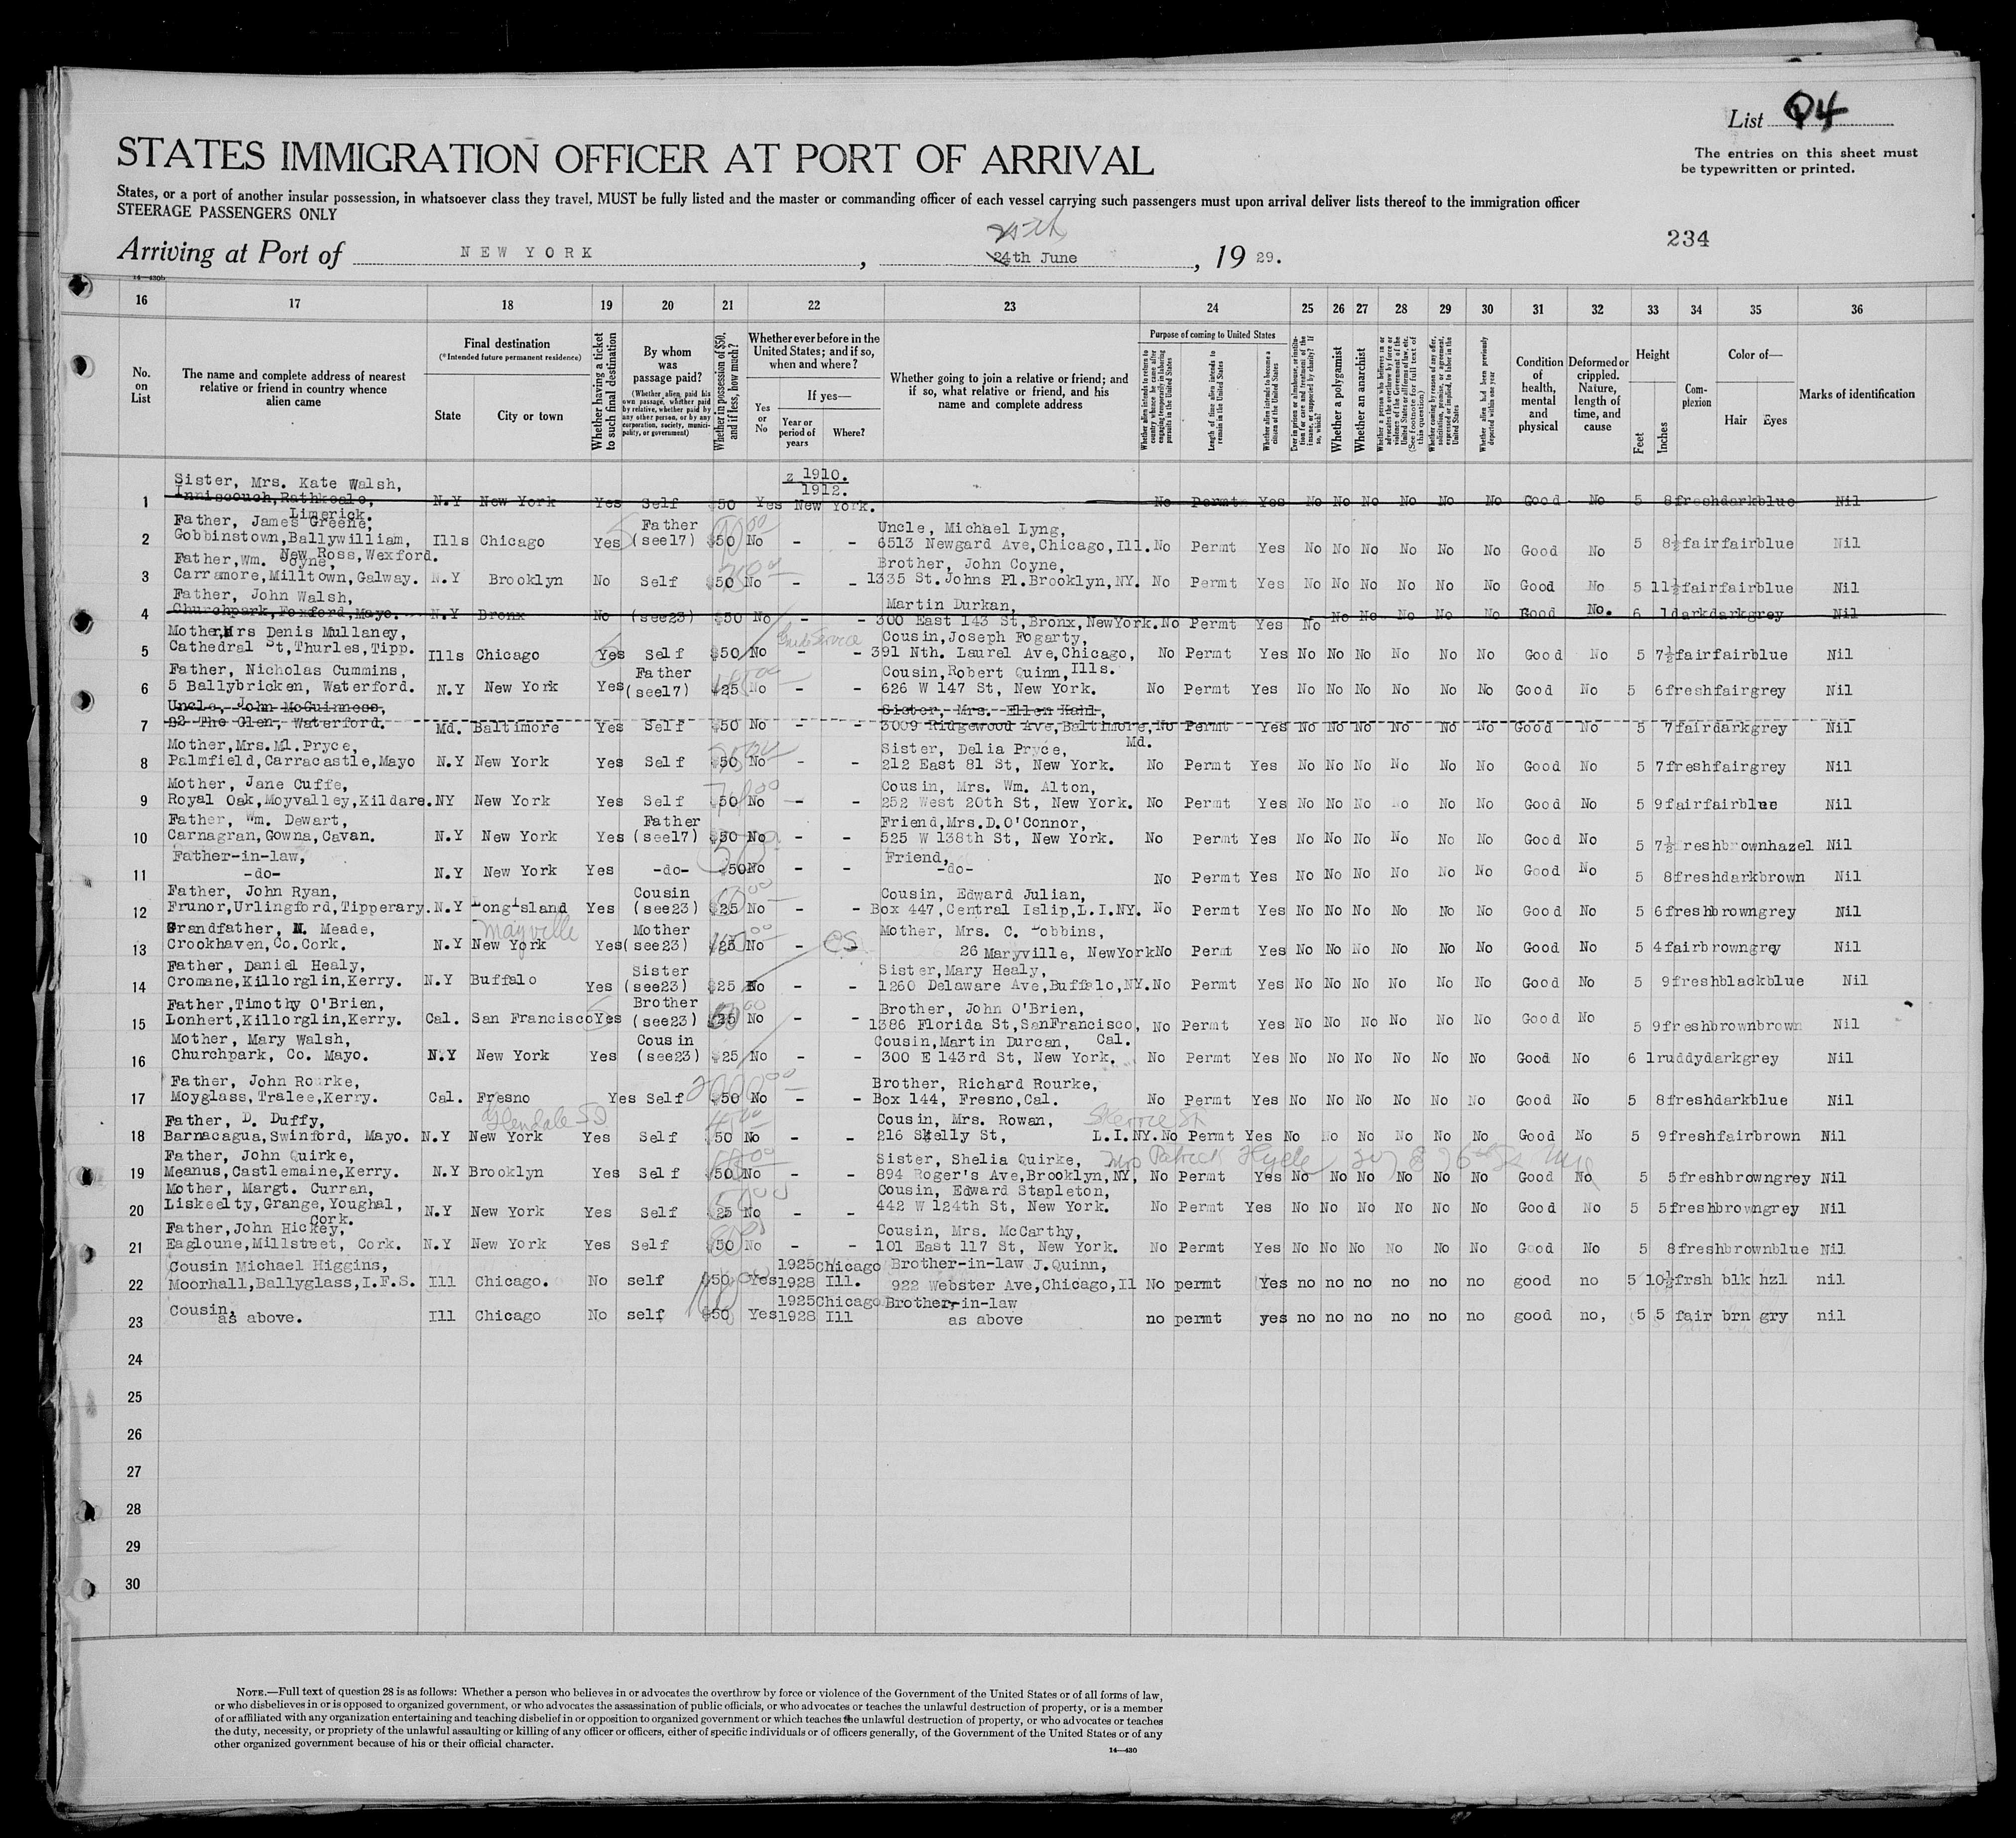 List 94
The entries on this sheet must
be typewritten or printed.
STATES IMMIGRATION OFFICER AT PORT OF ARRIVAL
States, or a port of another insular possession, in whatsoever class they travel, MUST be fully listed and the master or commanding officer of each vessel carrying such passengers must upon arrival deliver lists thereof to the immigration officer
STEERAGE PASSENGERS ONLY
25th
234
Arriving at Port of NEW YORK, 24th June, 19 29.
14—430b
16 17 18 19 20 21 22 23 24 25 26 27 28 29 30 31 32 33 34 35 36
No. on List
The name and complete address of nearest relative or friend in country whence alien came
Final destination
(*Intended future permanent residence)
State
City or town
Whether having a ticket to such final destination
By whom was passage paid?
(Whether alien paid his own passage, whether paid by relative, whether paid by any other person, or by any corporation, society, municipality, or government)
Whether in possession of $50, and if less, how much?
Whether ever before in the United States; and if so, when and where?
Yes or No
If yes—
Year or period of years
Where?
Whether going to join a relative or friend; and if so, what relative or friend, and his name and complete address
Purpose of coming to United States
Whether alien intends to return to country whence he came after engaging temporarily in laboring pursuits in the United States
Length of time alien intends to remain in the United States
Whether alien intends to become a citizen of the United States
Ever in prison or almshouse, or institution for care and treatment of the insane, or supported by charity? If so, which?
Whether a polygamist
Whether an anarchist
Whether a person who believes in or advocates the overthrow by force or violence of the Government of the United States or all forms of law, etc. (See footnote for full text of this question)
Whether coming by reason of any offer, solicitation, promise, or agreement, expressed or implied, to labor in the United States
Whether alien had been previously deported within one year
Condition of health, mental and physical
Deformed or crippled. Nature, length of time, and cause
Height
Feet
Inches
Complexion
Color of—
Hair Eyes
Marks of identification
Sister, Mrs. Kate Walsh, z 1910.
1 Inniscouch, Rathkeale, N.Y New York Yes Self $50 Yes 1912. New York. No Permt Yes No No No No No No Good No 5 8 fresh dark blue Nil
Limerick.
Father, James Greene, Father Uncle, Michael Lyng,
2 Gobbinstown, Ballywilliam, Ills Chicago Yes (see17) $50 No - - 6513 Newgard Ave, Chicago, Ill. No Permt Yes No No No No No No Good No 5 8½ fair fair blue Nil
New Ross, Wexford.
Father, Wm. Coyne, Brother, John Coyne,
3 Carramore, Milltown, Galway. N.Y Brooklyn No Self $50 No - - 1335 St. Johns Pl. Brooklyn, NY. No Permt Yes No No No No No No Good No 5 11½ fair fair blue Nil
Father, John Walsh, Martin Durkan,
4 Churchpark, Foxford, Mayo. N.Y Bronx No (see23) $50 No - - 300 East 143 St, Bronx, NewYork. No Permt Yes No No No No No No Good No. 6 1 dark dark grey Nil
Mother, Mrs Denis Mullaney, Cousin, Joseph Fogarty,
5 Cathedral St, Thurles, Tipp. Ills Chicago Yes Self $50 No - - 391 Nth. Laurel Ave, Chicago, No Permt Yes No No No No No No Good No 5 7½ fair fair blue Nil
Ills.
Father, Nicholas Cummins, Father Cousin, Robert Quinn,
6 5 Ballybricken, Waterford. N.Y New York Yes (see17) $25 No - - 626 W 147 St, New York. No Permt Yes No No No No No No Good No 5 6 fresh fair grey Nil
Uncle, John McGuinness, Sister, Mrs. Ellen Kahl,
7 82 The Glen, Waterford. Md. Baltimore Yes Self $50 No - - 3009 Ridgewood Ave, Baltimore, No Permt Yes No No No No No No Good No 5 7 fair dark grey Nil
Md.
Mother, Mrs. Ml. Pryce, Sister, Delia Pryce,
8 Palmfield, Carracastle, Mayo N.Y New York Yes Self $50 No - - 212 East 81 St, New York. No Permt Yes No No No No No No Good No 5 7 fresh fair grey Nil
Mother, Jane Cuffe, Cousin, Mrs. Wm. Alton,
9 Royal Oak, Moyvalley, Kildare. NY New York Yes Self $50 No - - 252 West 20th St, New York. No Permt Yes No No No No No No Good No 5 9 fair fair blue Nil
Father, Wm. Dewart, Father Friend, Mrs. D. O'Connor,
10 Carnagran, Gowna, Cavan. N.Y New York Yes (see17) $50 No - - 525 W 138th St, New York. No Permt Yes No No No No No No Good No 5 7½ resh brown hazel Nil
Father-in-law, Friend,
11 -do- N.Y New York Yes -do- $50 No - - -do- No Permt Yes No No No No No No Good No 5 8 fresh dark brown Nil
Father, John Ryan, Cousin Cousin, Edward Julian,
12 Frunor, Urlingford, Tipperary. N.Y Long Island Yes (see23) $25 No - - Box 447, Central Islip, L.I.NY. No Permt Yes No No No No No No Good No 5 6 fresh brown grey Nil
Mayville
Grandfather, M. Meade, Mother Mother, Mrs. C. Dobbins,
13 Crookhaven, Co. Cork. N.Y New York Yes (see23) $25 No - - 26 Maryville, NewYork No Permt Yes No No No No No No Good No 5 4 fair brown grey Nil
Father, Daniel Healy, Sister Sister, Mary Healy,
14 Cromane, Killorglin, Kerry. N.Y Buffalo Yes (see23) $25 No - - 1260 Delaware Ave, Buffalo, NY. No Permt Yes No No No No No No Good No 5 9 fresh black blue Nil
Father, Timothy O'Brien, Brother Brother, John O'Brien,
15 Lonhert, Killorglin, Kerry. Cal. San Francisco Yes (see23) $25 No - - 1386 Florida St, SanFrancisco, No Permt Yes No No No No No No Good No 5 9 fresh brown brown Nil
Cal.
Mother, Mary Walsh, Cousin Cousin, Martin Durcan,
16 Churchpark, Co. Mayo. N.Y New York Yes (see23) $25 No - - 300 E 143rd St, New York. No Permt Yes No No No No No No Good No 6 1 ruddy dark grey Nil
Father, John Rourke, Brother, Richard Rourke,
17 Moyglass, Tralee, Kerry. Cal. Fresno Yes Self $50 No - - Box 144, Fresno, Cal. No Permt Yes No No No No No No Good No 5 8 fresh dark blue Nil
Glendale
Father, D. Duffy, Cousin, Mrs. Rowan,
18 Barnacagua, Swinford, Mayo. N.Y New York Yes Self $50 No - - 216 Skelly St, L.I.NY. No Permt Yes No No No No No No Good No 5 9 fresh fair brown Nil
Father, John Quirke, Sister, Shelia Quirke, Mrs Patrick Hyde
19 Meanus, Castlemaine, Kerry. N.Y Brooklyn Yes Self $50 No - - 894 Roger's Ave, Brooklyn, NY, No Permt Yes No No No No No No Good No 5 5 fresh brown grey Nil
Mother, Margt. Curran, Cousin, Edward Stapleton,
20 Liskeelty, Grange, Youghal, N.Y New York Yes Self $25 No - - 442 W 124th St, New York. No Permt Yes No No No No No No Good No 5 5 fresh brown grey Nil
Cork.
Father, John Hickey, Cousin, Mrs. McCarthy,
21 Eagloune, Millstreet, Cork. N.Y New York Yes Self $50 No - - 101 East 117 St, New York. No Permt Yes No No No No No No Good No 5 8 fresh brown blue Nil
Cousin Michael Higgins, 1925 Chicago Brother-in-law J. Quinn,
22 Moorhall, Ballyglass, I.F.S. Ill Chicago. No self $50 Yes 1928 Ill. 922 Webster Ave, Chicago, Il No permt Yes no no no no no no good no 5 10½ frsh blk hzl nil
Cousin, 1925 Chicago Brother-in-law
23 as above. Ill Chicago No self $50 Yes 1928 Ill as above no permt yes no no no no no no good no, 5 5 fair brn gry nil
24
25
26
27
28
29
30
NOTE.—Full text of question 28 is as follows: Whether a person who believes in or advocates the overthrow by force or violence of the Government of the United States or of all forms of law,
or who disbelieves in or is opposed to organized government, or who advocates the assassination of public officials, or who advocates or teaches the unlawful destruction of property, or is a member
of or affiliated with any organization entertaining and teaching disbelief in or opposition to organized government or which teaches the unlawful destruction of property, or who advocates or teaches
the duty, necessity, or propriety of the unlawful assaulting or killing of any officer or officers, either of specific individuals or of officers generally, of the Government of the United States or of any
other organized government because of his or their official character.
14—430